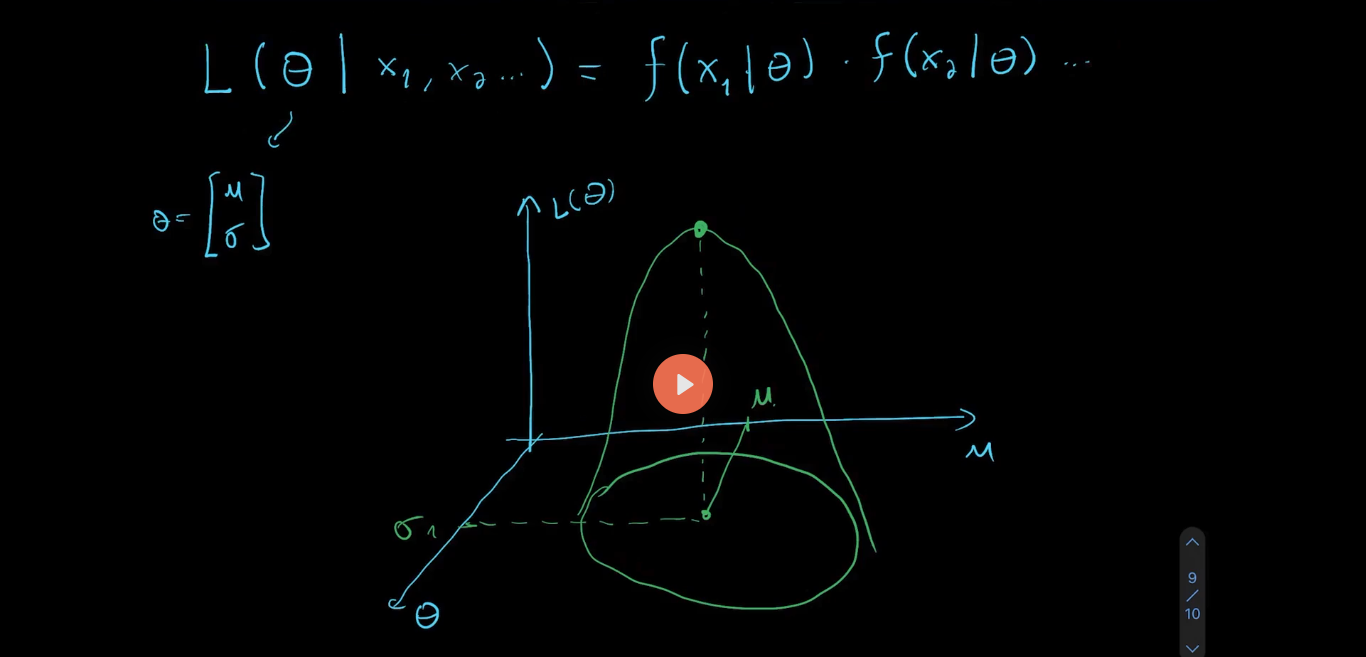 L (θ | x₁, x₂ ...) = f(x₁|θ) · f(x₂|θ) ...
θ = [μ
σ]
L(θ)
μ.
μ
σ₁
θ
9
/
10